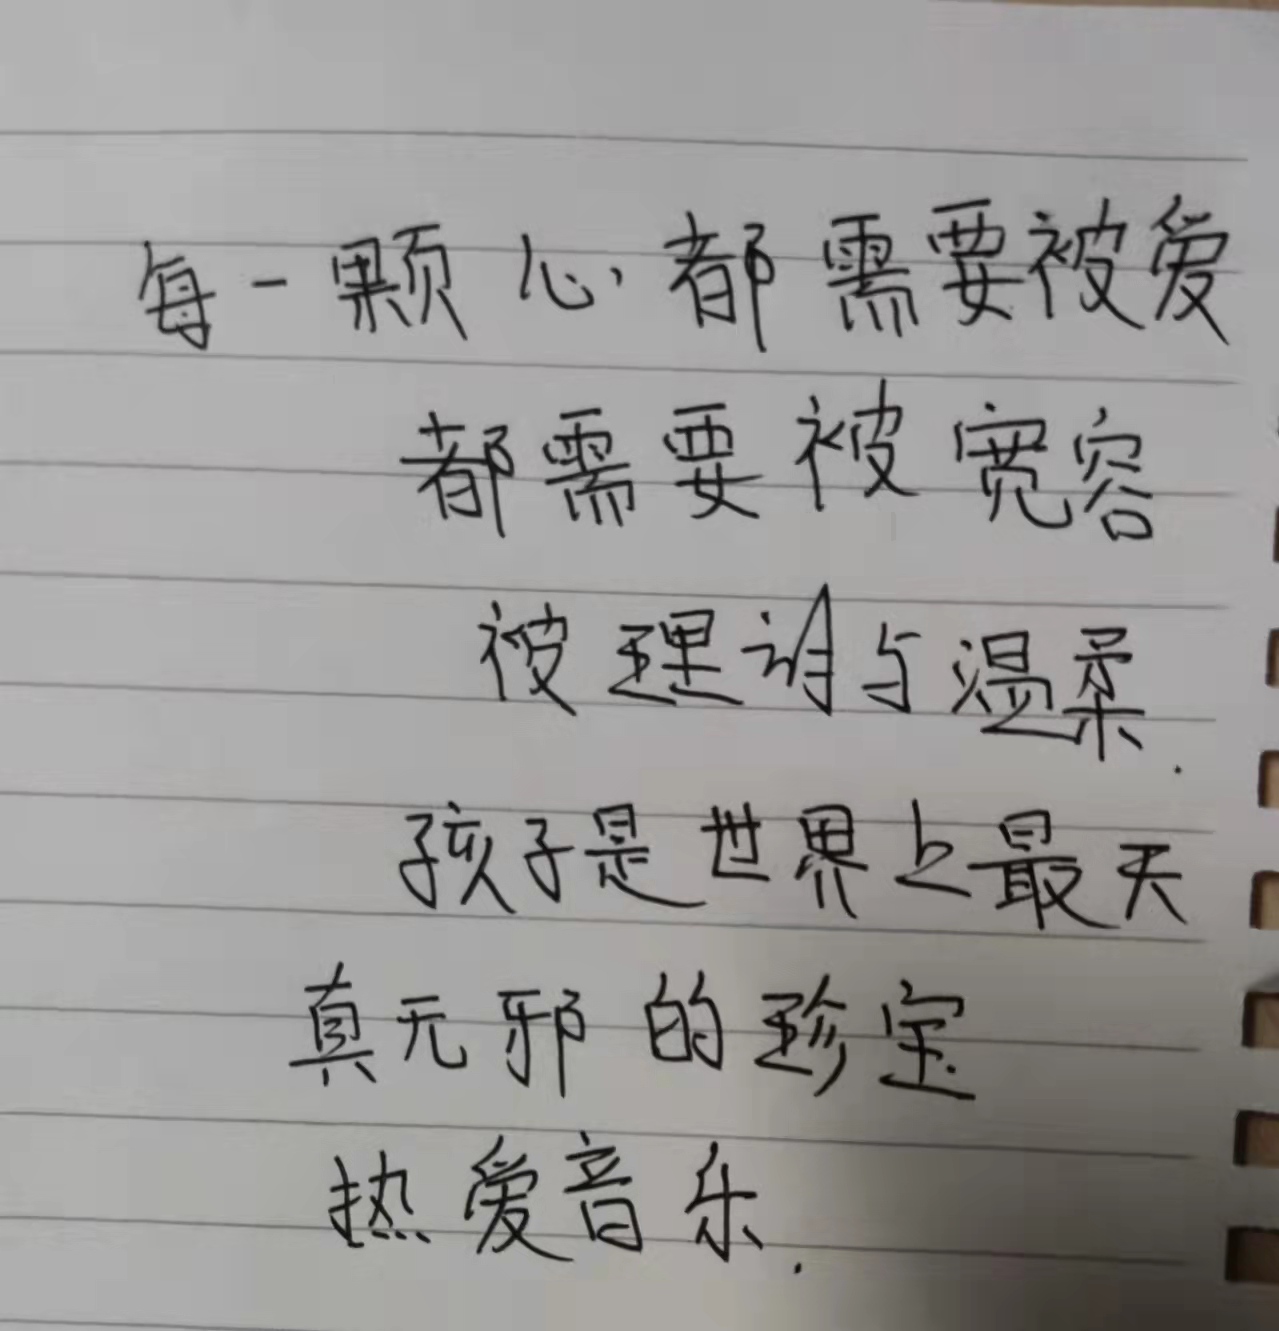 每一颗心都需要被爱
都需要被宽容
被理谓与温柔.
孩子是世界上最天
真无邪的珍宝
热爱音乐.